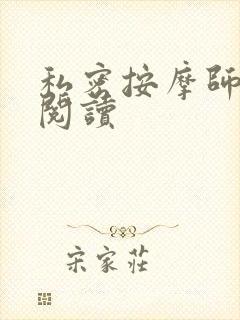 私密按摩師
閱讀
宋家莊